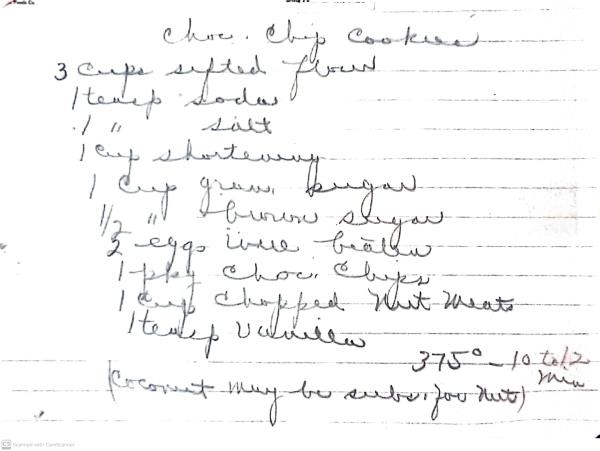 Choc. Chip Cookies
3 Cups sifted flour
1 teasp soda
1 " salt
1 Cup shortening
1 Cup gran. sugar
1/2 " brown sugar
2 eggs well beaten
1 pkg Choc. Chips
1 Cup Chopped Nut Meats
1 teasp Vanilla
375° - 10 to 12
Min
(Coconut may be subs. for Nuts)
CS Scanned with CamScanner